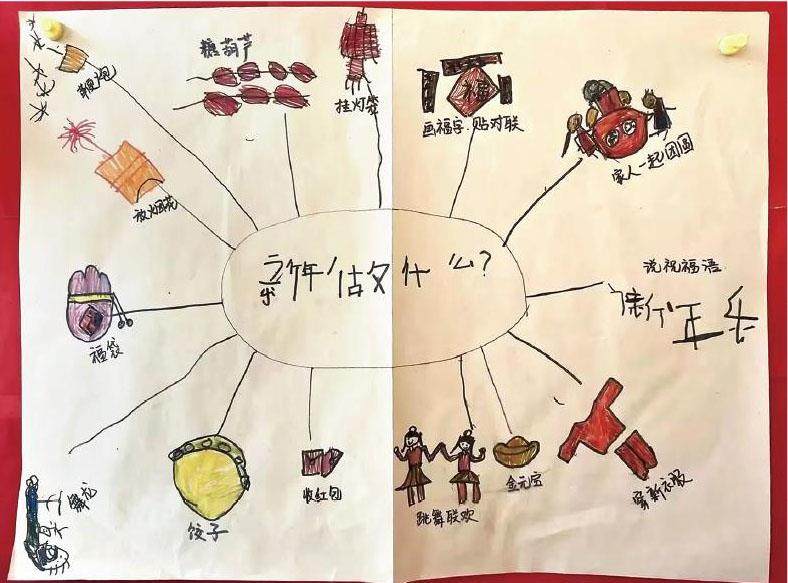 鞭炮
糖葫芦
挂灯笼
福
画福字、贴对联
家人一起团圆
放烟花
新年做什么？
说祝福语
新年快乐
福袋
饺子
收红包
跳舞联欢
金元宝
穿新衣服